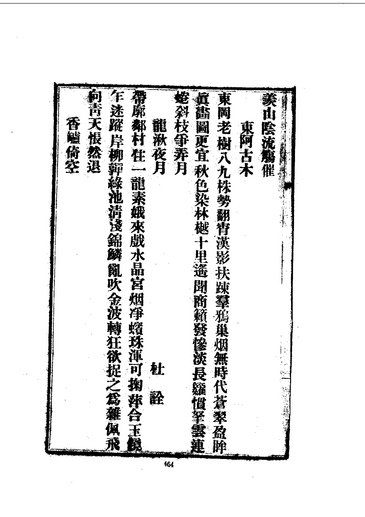 羨山陰流觴催
東阿古木
東岡老樹八九株勢翻霄漢影扶疎羣鴉巢烟無時代蒼翠盈眸
眞畵圖更宜秋色染林樾十里遙聞商籟發慘淡長 慣拏雲連
蜷斜枝爭弄月
龍湫夜月
杜詮
帶廓鄰村住一龍素娥來戲水晶宮烟凈蟾珠渾可掬萍合玉
年迷蹤岸柳嚲綠池清淺錦鱗亂吹金波轉狂欲捉之爲雜佩飛
向靑天悵然退
香爐倚空
464